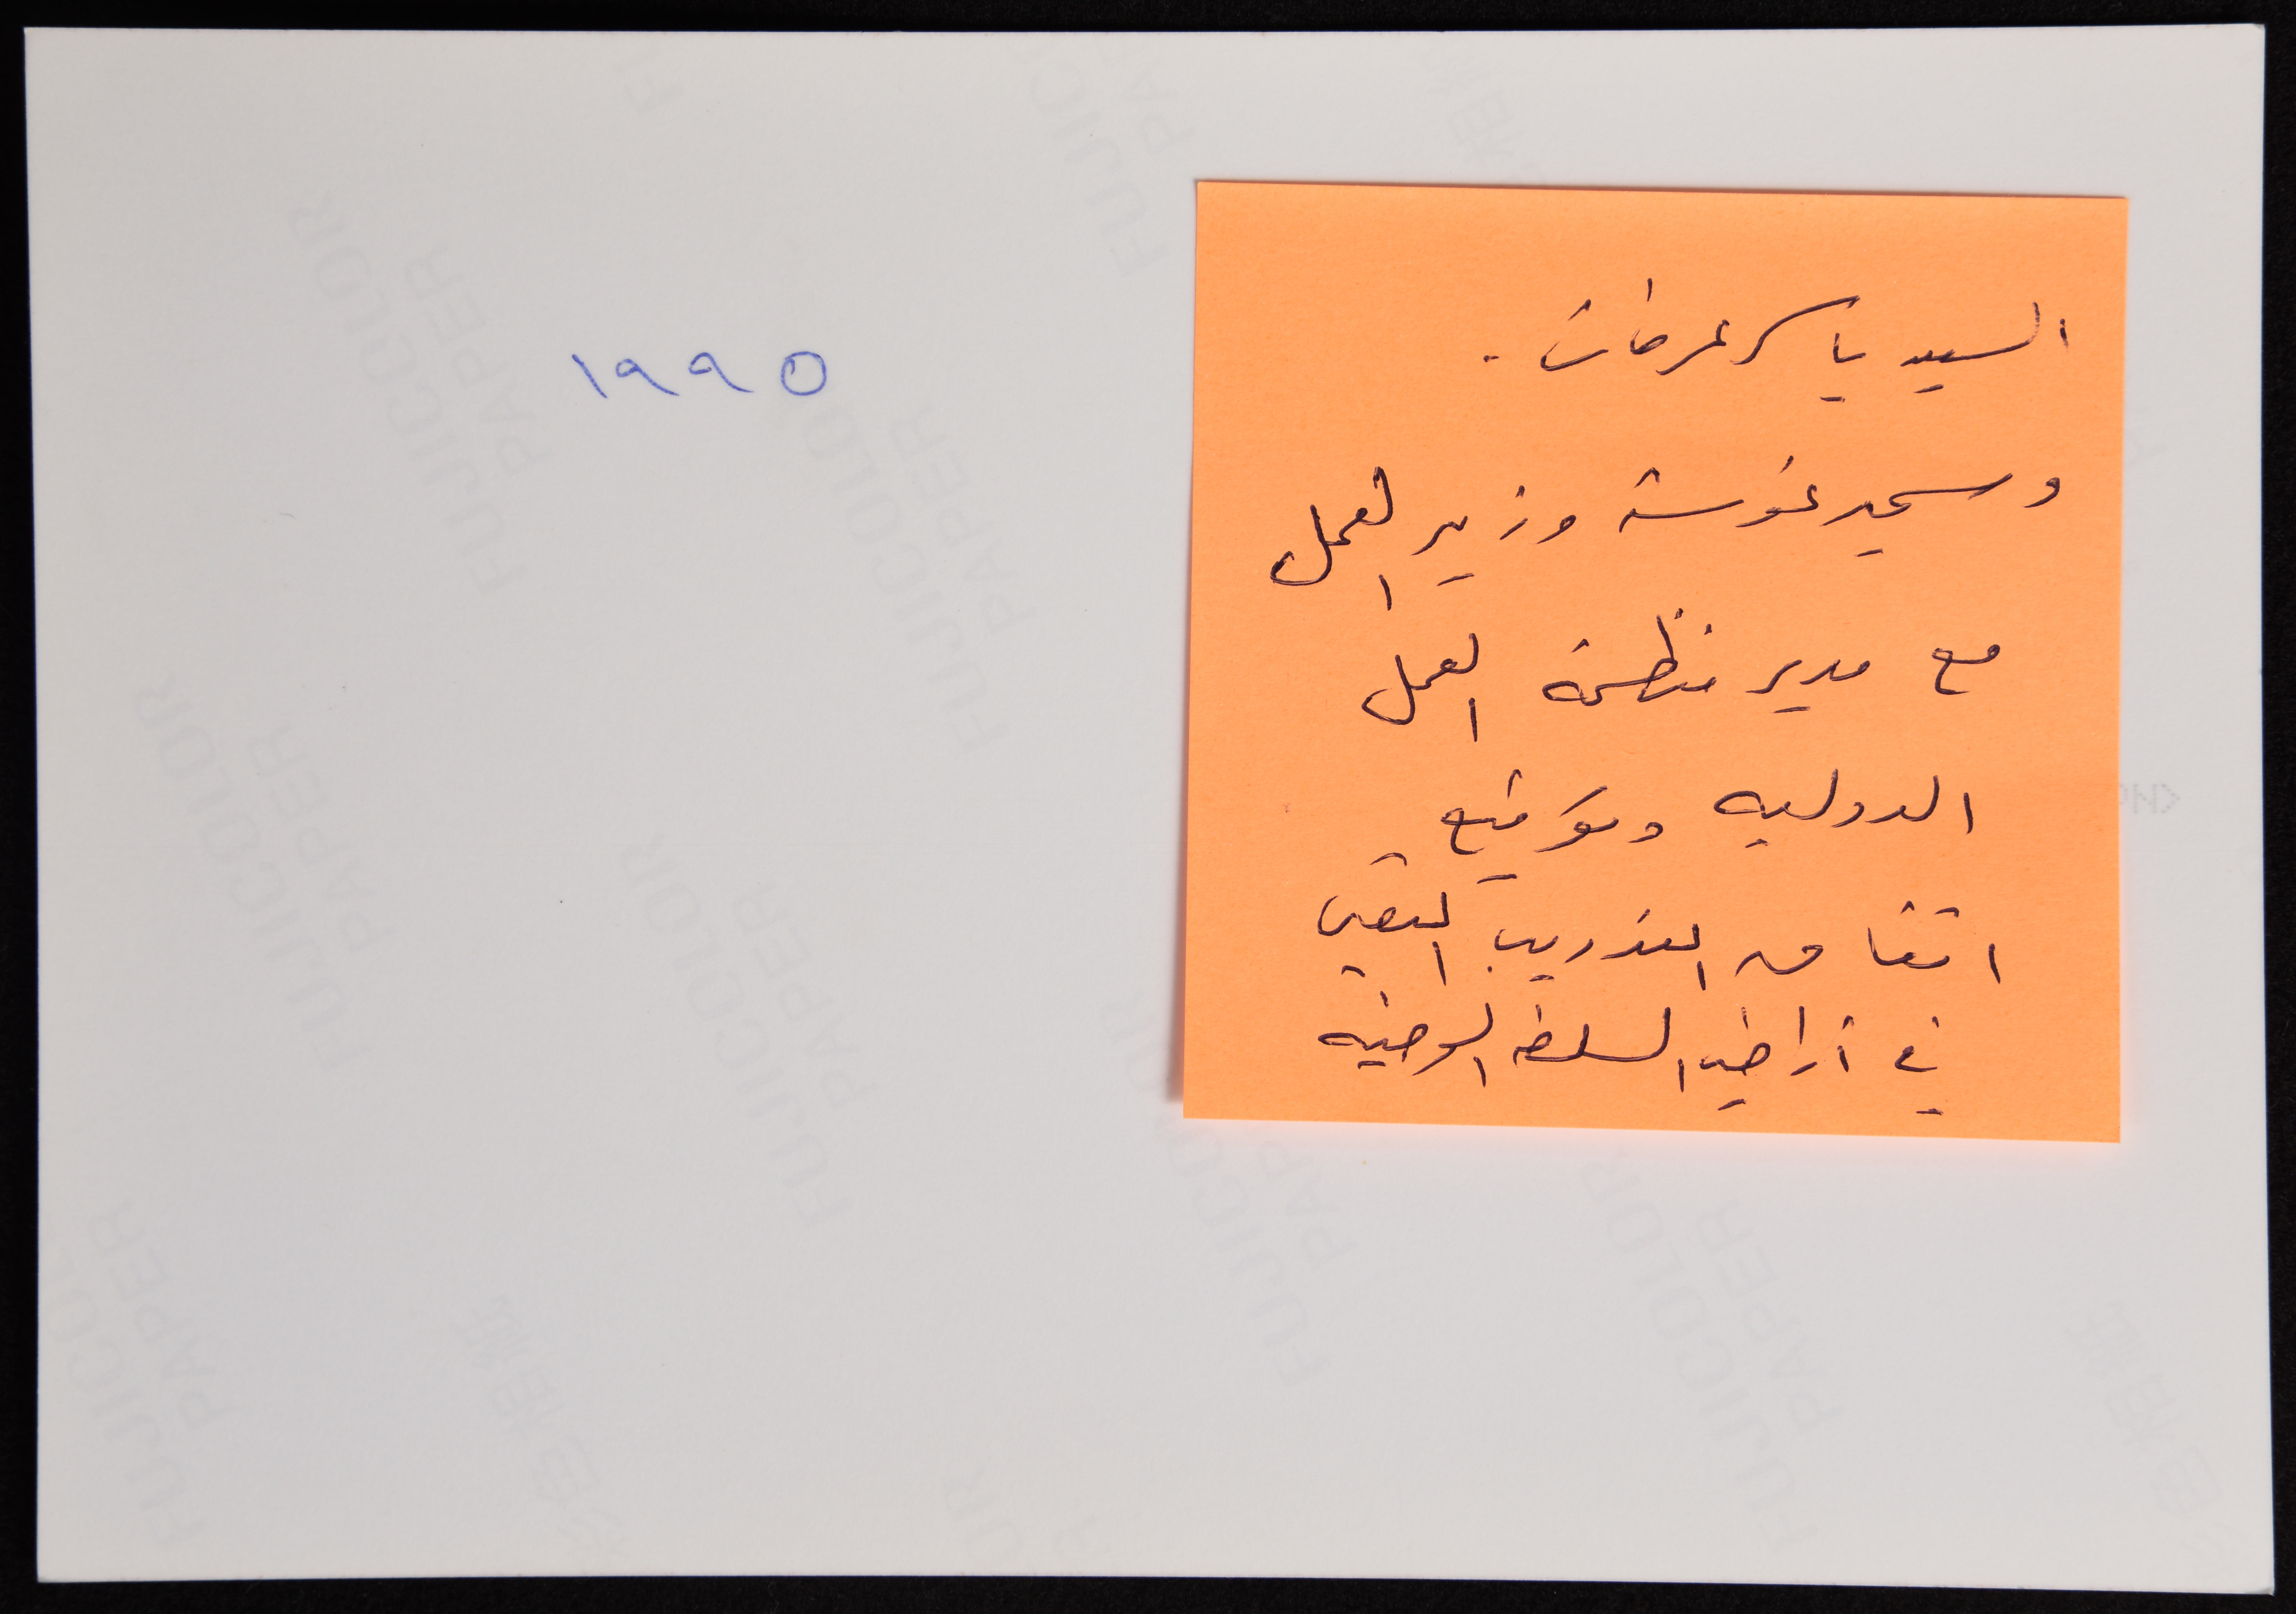 السيد ياسر عرفات.
وسمير غوشة وزير العمل
مع مدير منظمة العمل
الدوليه وتوقيع
اتفاق التدريب التقني
في أراضي السلطه الوطنيه
١٩٩٥
FUJICOLOR
PAPER